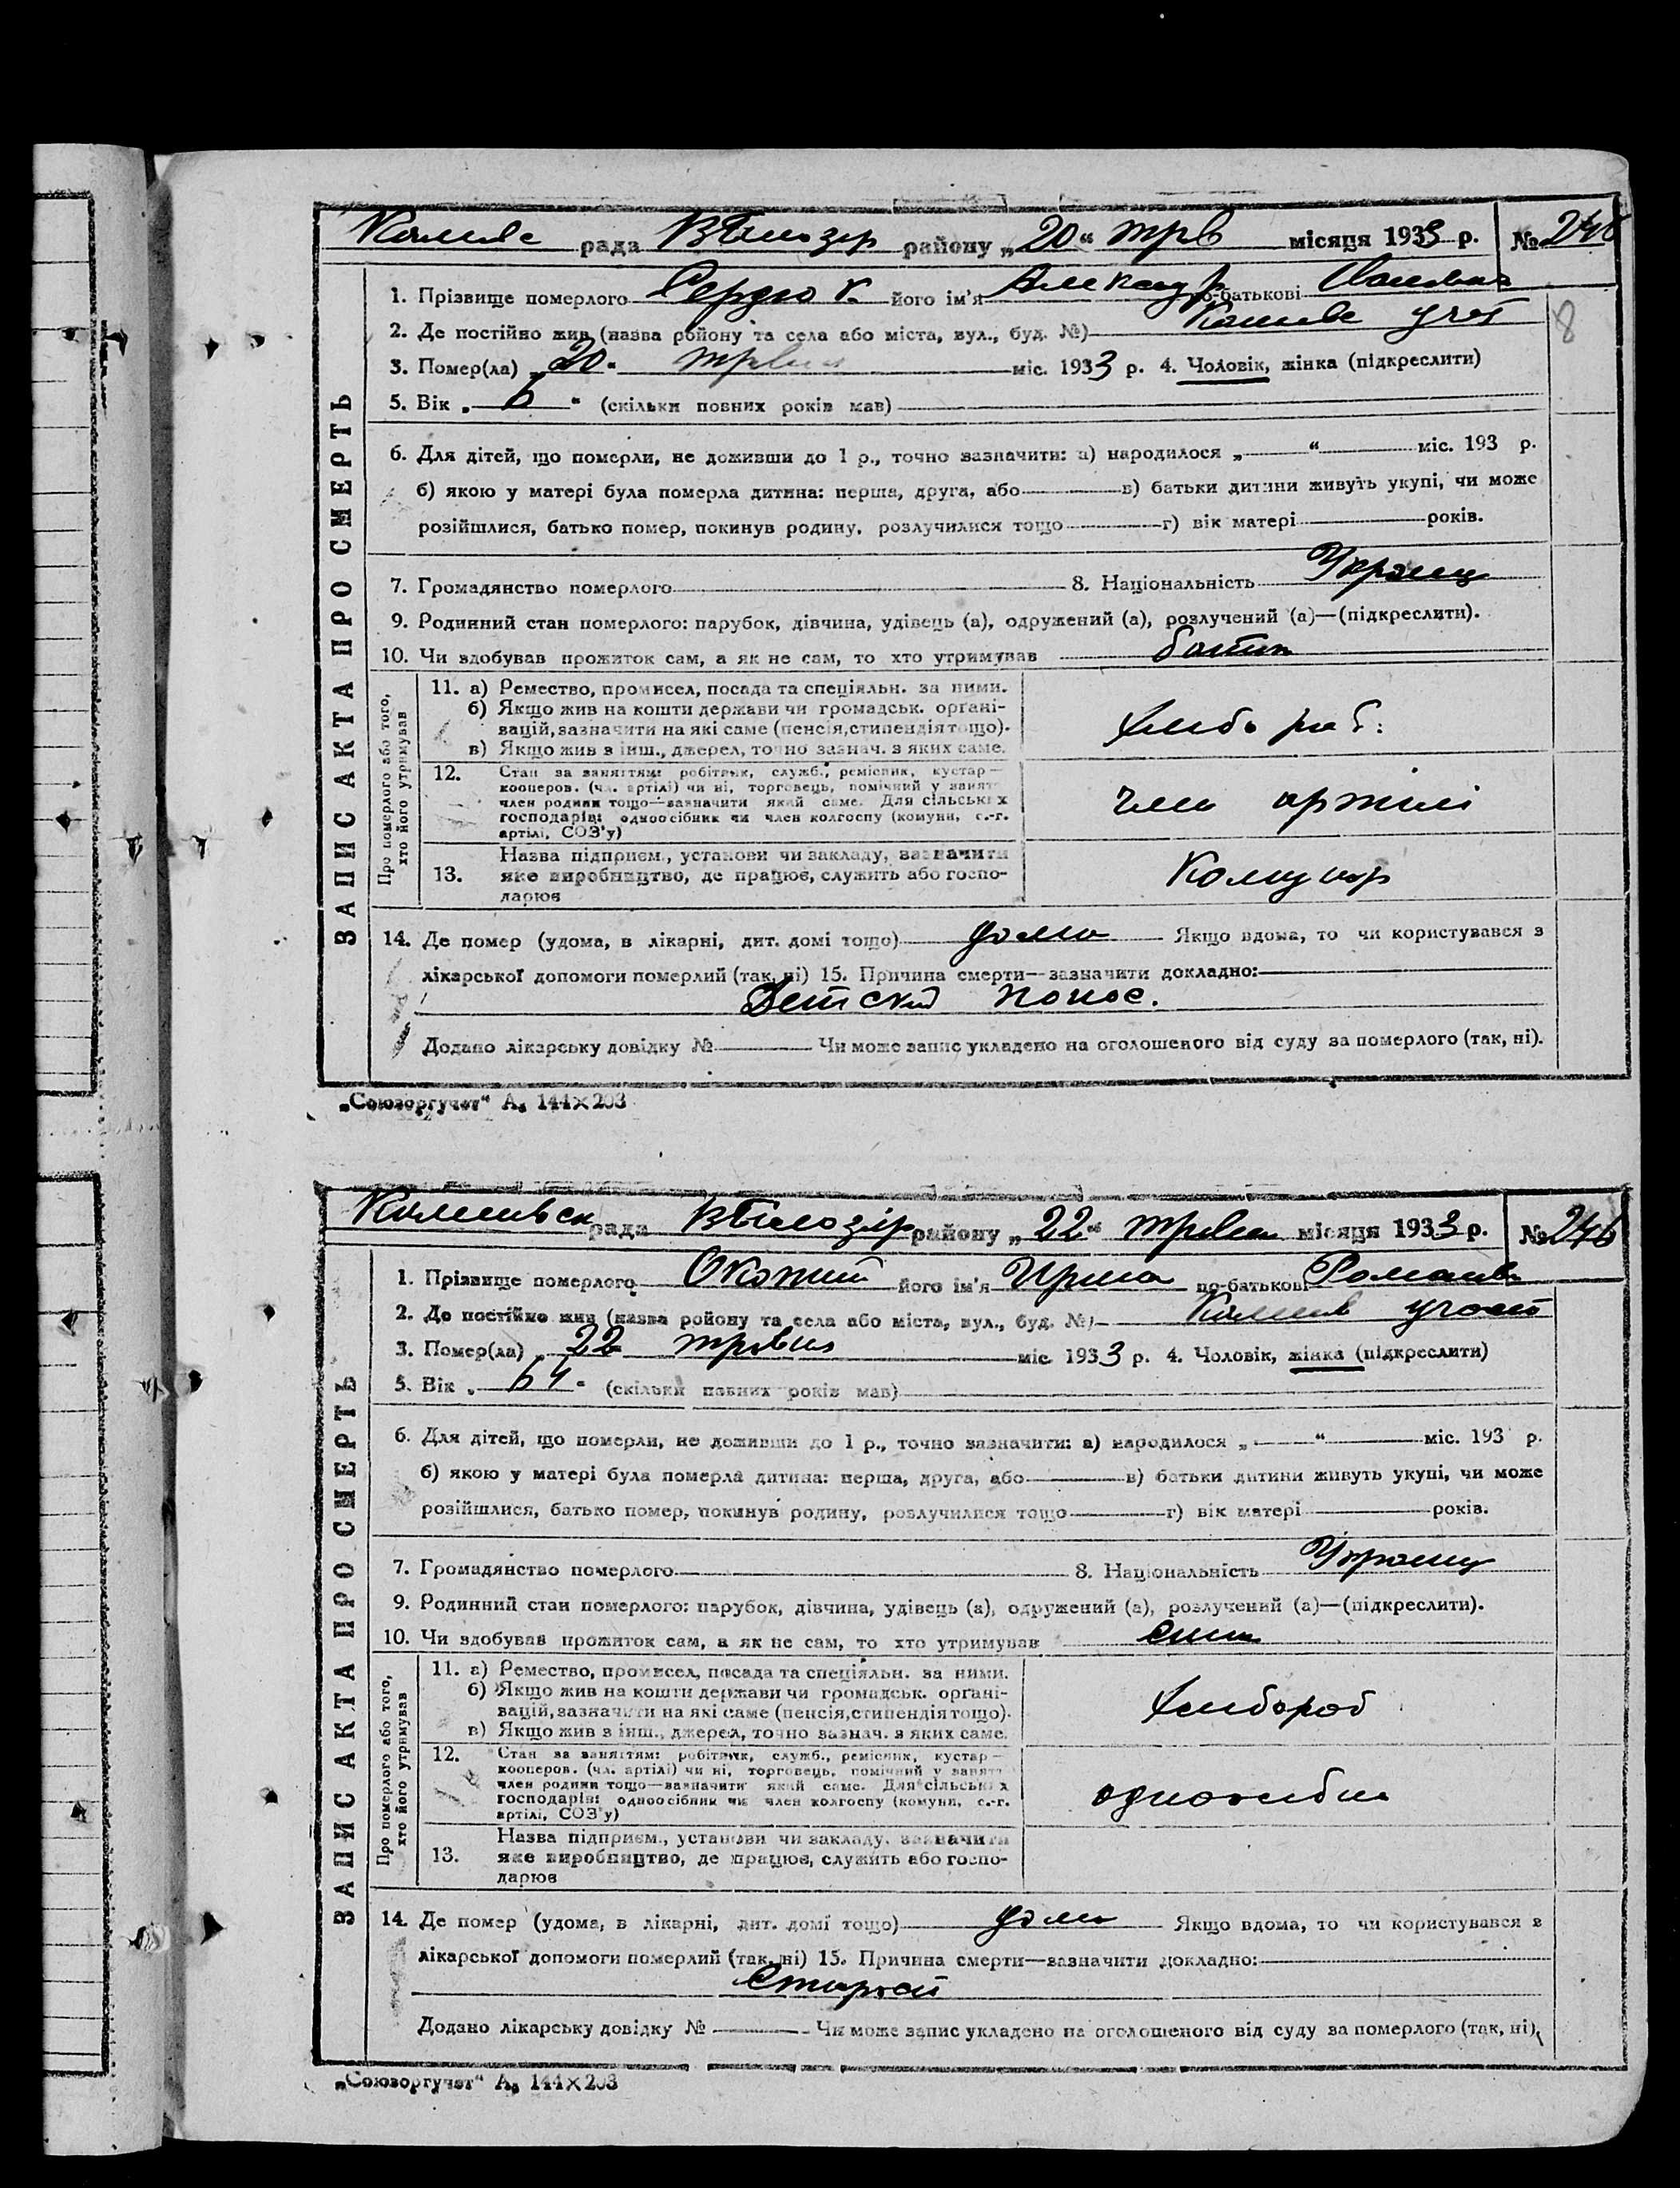 рада В Білозер району „20“ трв місяця 1933 р. №
1. Прізвище померлого Сердюк його ім'я Александр по-батькові
2. Де постійно жив (назва району та села або міста, вул., буд. №)
3. Помер(ла) „20“ травня міс. 1933 р. 4. Чоловік, жінка (підкреслити)
8
5. Вік „6“ (скільки повних років мав)
6. Для дітей, що померли, не доживши до 1 р., точно зазначити: а) народилося „ “ міс. 193 р.
б) якою у матері була померла дитина: перша, друга, або в) батьки дитини живуть укупі, чи може
розійшлися, батько помер, покинув родину, розлучилися тощо г) вік матері років.
7. Громадянство померлого 8. Національність Украинц
9. Родинний стан померлого: парубок, дівчина, удівець (а), одружений (а), розлучений (а)—(підкреслити).
10. Чи здобував прожиток сам, а як не сам, то хто утримував батьки
ЗАПИС АКТА ПРО СМЕРТЬ
Про померлого або того,
хто його утримував
11. а) Ремество, промисел, посада та спеціяльн. за ними.
б) Якщо жив на кошти держави чи громадськ. органі-
зацій, зазначити на які саме (пенсія, стипендія тощо).
в) Якщо жив з інш., джерел, точно зазнач. з яких саме.
хлібороб.
12. Стан за заняттям: робітник, служб., ремісник, кустар—
кооперов. (чл. артілі) чи ні, торговець, помічний у занят.
член родини тощо—зазначити який саме. Для сільських
господарів: одноосібник чи член колгоспу (комуни, с.-г.
артілі, СОЗ'у)
член артилі
13. Назва підприєм., установи чи закладу, зазначити
яке виробництво, де працює, служить або госпо-
дарює
14. Де помер (удома, в лікарні, дит. домі тощо) дома Якщо вдома, то чи користувався з
лікарської допомоги померлий (так, ні) 15. Причина смерти—зазначити докладно:
Детский понос.
Додано лікарську довідку № Чи може запис укладено на оголошеного від суду за померлого (так, ні).
„Союзоргучет“ А₅ 144×203
рада В Білозер району „22“ травня місяця 1933 р. № 246
1. Прізвище померлого його ім'я по-батькові Романів
2. Де постійно жив (назва району та села або міста, вул., буд. №)
3. Помер(ла) „22“ травня міс. 1933 р. 4. Чоловік, жінка (підкреслити)
5. Вік „64“ (скільки повних років мав)
6. Для дітей, що померли, не доживши до 1 р., точно зазначити: а) народилося „ “ міс. 193 р.
б) якою у матері була померла дитина: перша, друга, або в) батьки дитини живуть укупі, чи може
розійшлися, батько помер, покинув родину, розлучилися тощо г) вік матері років.
7. Громадянство померлого 8. Національність Украинц
9. Родинний стан померлого: парубок, дівчина, удівець (а), одружений (а), розлучений (а)—(підкреслити).
10. Чи здобував прожиток сам, а як не сам, то хто утримував
ЗАПИС АКТА ПРО СМЕРТЬ
Про померлого або того,
хто його утримував
11. а) Ремество, промисел, посада та спеціяльн. за ними.
б) Якщо жив на кошти держави чи громадськ. органі-
зацій, зазначити на які саме (пенсія, стипендія тощо).
в) Якщо жив з інш., джерел, точно зазнач. з яких саме.
хлібороб
12. Стан за заняттям: робітник, служб., ремісник, кустар—
кооперов. (чл. артілі) чи ні, торговець, помічний у занят.
член родини тощо—зазначити який саме. Для сільських
господарів: одноосібник чи член колгоспу (комуни, с.-г.
артілі, СОЗ'у)
одноосібн
13. Назва підприєм., установи чи закладу, зазначити
яке виробництво, де працює, служить або госпо-
дарює
14. Де помер (удома, в лікарні, дит. домі тощо) дома Якщо вдома, то чи користувався з
лікарської допомоги померлий (так, ні) 15. Причина смерти—зазначити докладно:
Старость
Додано лікарську довідку № Чи може запис укладено на оголошеного від суду за померлого (так, ні).
„Союзоргучет“ А₅ 144×203